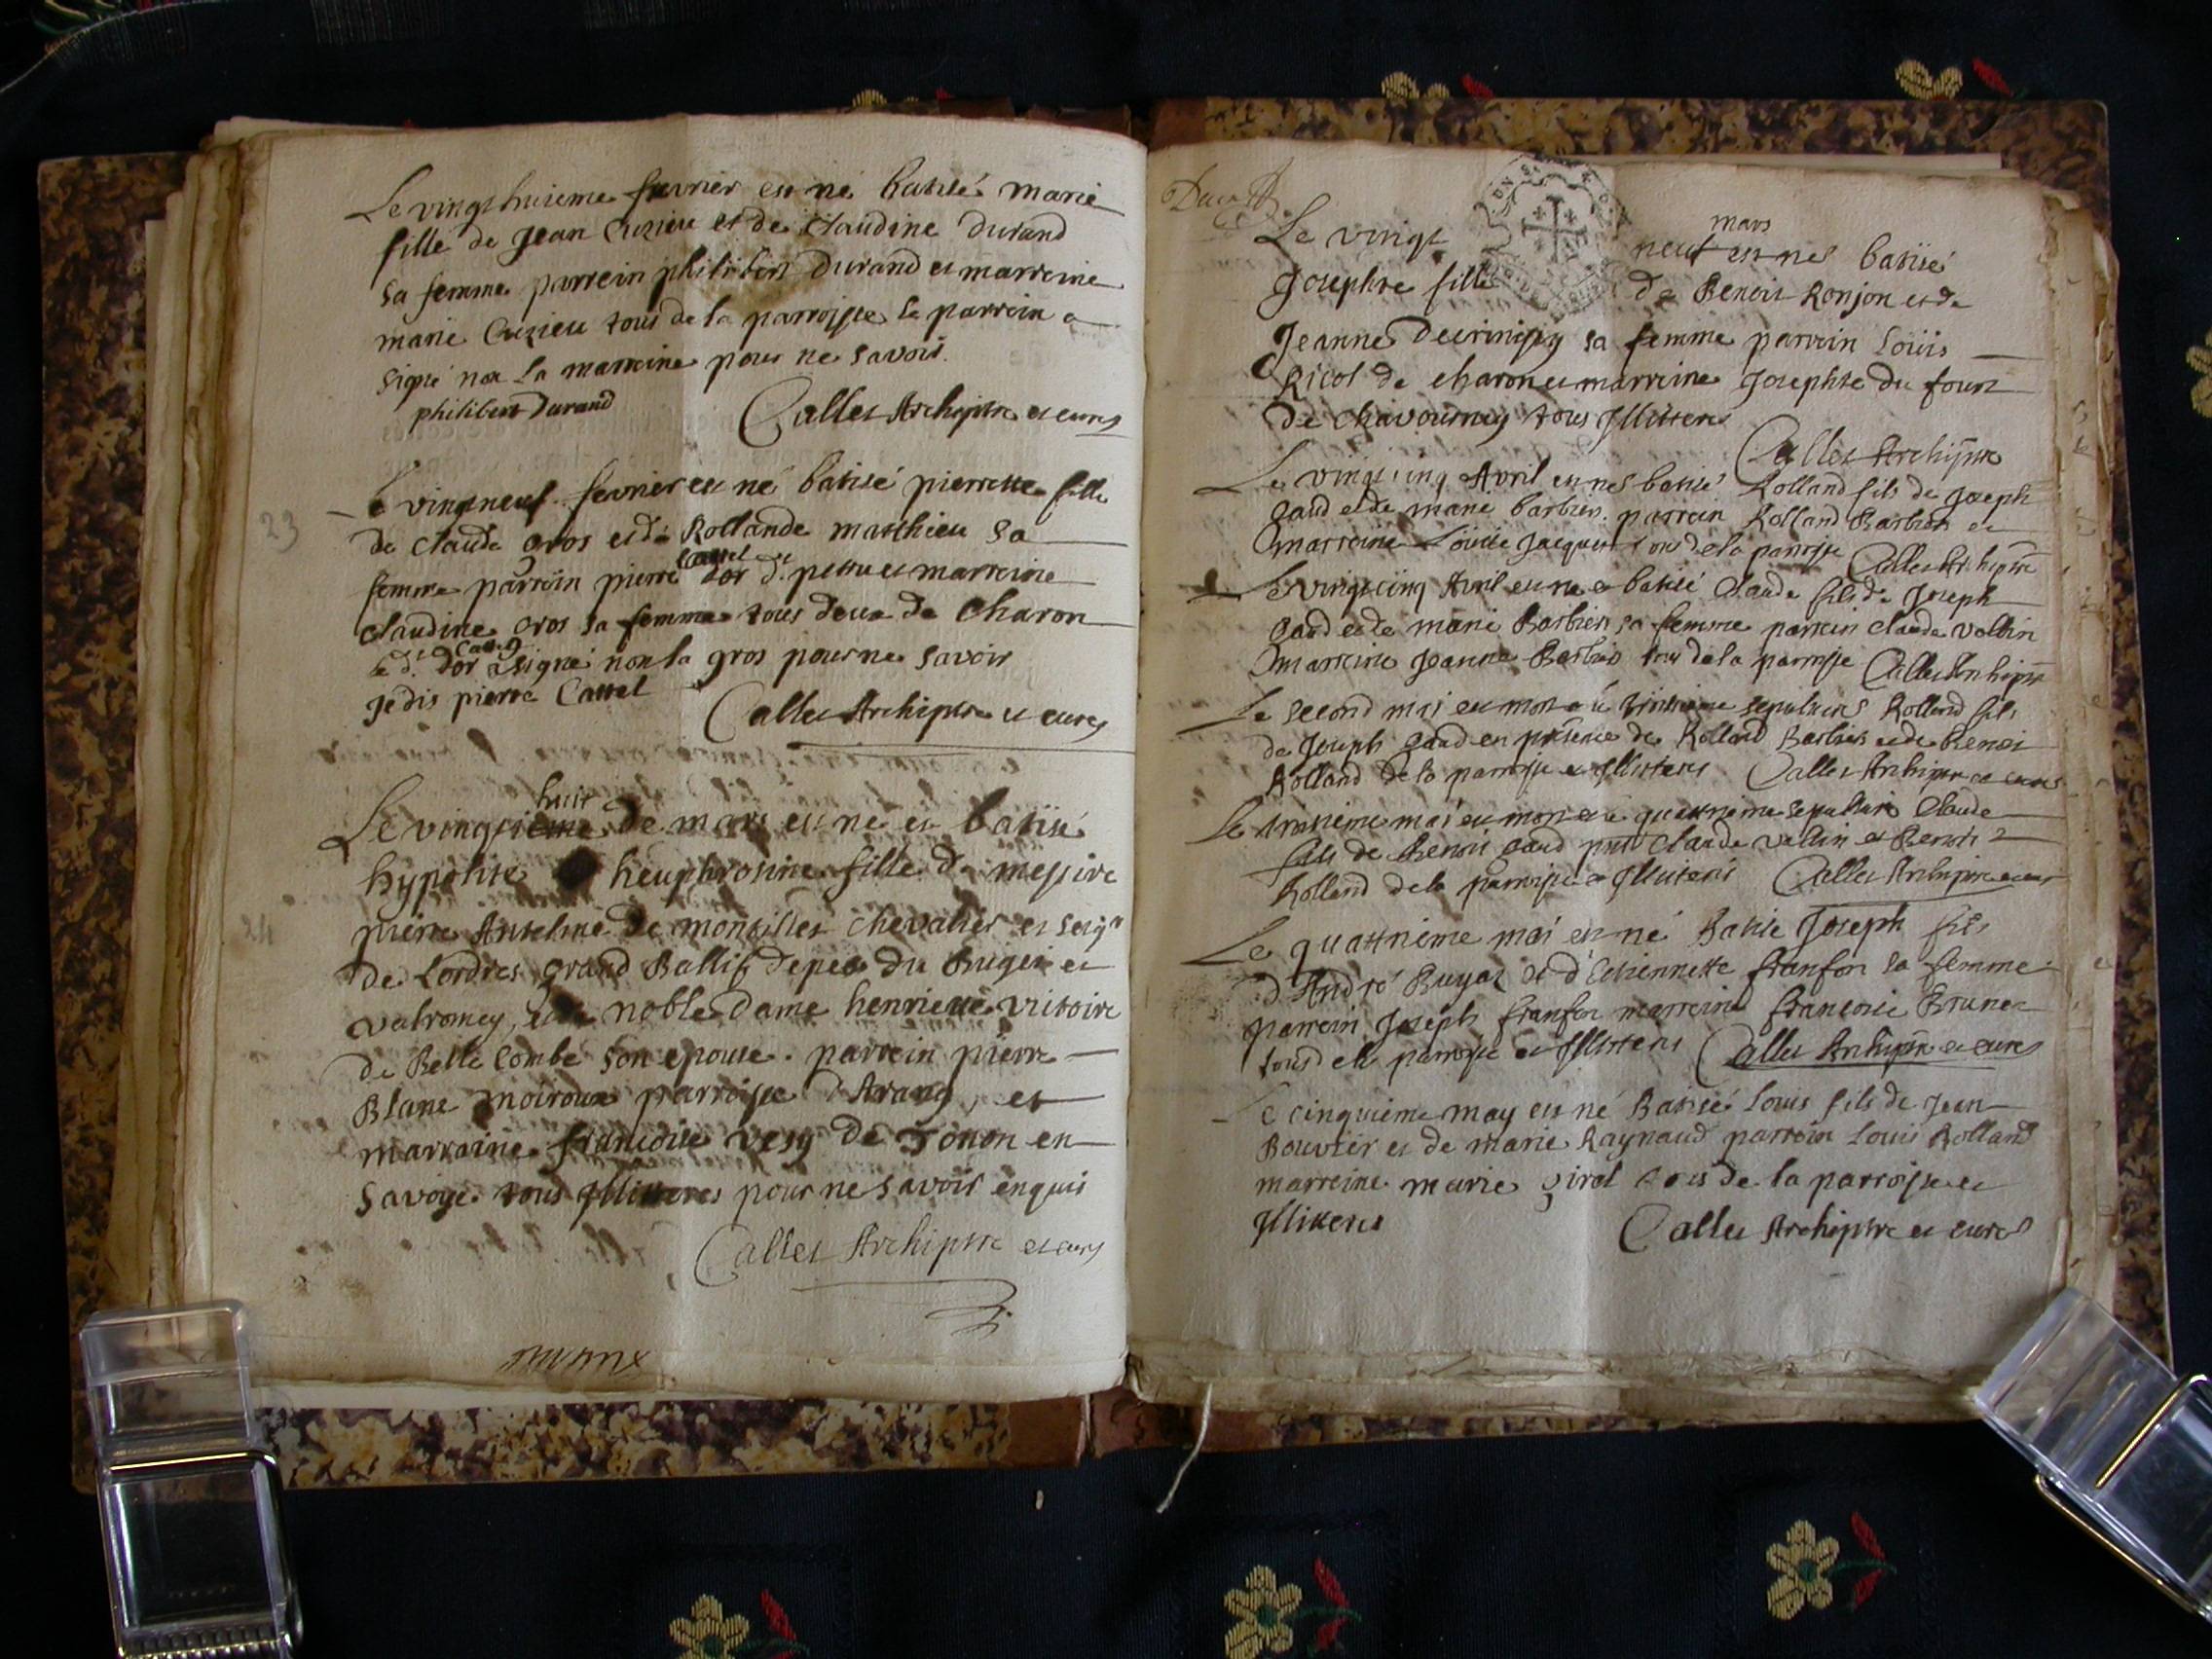 Le vingt huiteme fevrier est né batisé marie
fille de Jean Cuzieu et de Claudine durand
sa femme parrein philibert Durand et marreine
marie Cuzieu tous de la parroisse le parrein a
signé non la marreine pour ne savoir.
philibert Durand
Callet Archiptre et curé
Le vingtneuf fevrier est né batisé pierrette fille
23
de claude gros et de Rollande matthieu sa
cattel
femme parrein pierre dor d.t et marreine
claudine gros sa femme tous deux de Charon
le d.t dor a signé non la gros pour ne savoir
Je dis pierre Cattel
Callet Archiptre et curé
huit
Le vingtieme de mars est né et batisé
hypolite heuphrosine fille de messire
24
pierre Anthelme de montillet chevalier et seigr
de Lordres grand Ballif depée du Bugei et
valromey, et noble Dame henriette vittoire
de Belle Combe son epouse. parrein pierre
Blanc moiroux parroisse d'Arang, et
marraine francoise vesy de Tonon en
Savoye tous Illitteres pour ne savoir enquis
Callet Archiptre et curé
Le vingt
mars
neuf est né batisé
Josephte fille de Benoit Ronjon et de
Jeanne sa femme parrein Loüis
Ricol de charon et marreine Josephte du four
de chavourney tous Illitteres
Callet Archiptre
Le vingt cinq Avril est né batisé Rolland fils de Joseph
gaud et de marie barbier. parrein Rolland Barbier et
marreine Louise Jacquet tous de la parroisse Callet Archiptre
Le vingt cinq Avril est né et batisé Claude fils de Joseph
gaud et de marie Barbier sa femme parrein claude vollin
marreine Jeanne Barbier tous de la parroisse Callet Archiptre
Le second mai est mort et a été sepulturé Rolland fils
de Joseph gaud en présence de Rolland Barbier et de Benoi
Rolland de la parroisse et Illitteres Callet Archiptre et curé
Le troisieme mai est mort et le quattrieme sepulturé Claude
fils de Benoit gaud pnts Claude vollin et Benoit
Rolland de la parroisse et Illitteres Callet Archiptre et curé
Le quattrieme mai est né Batisé Joseph fils
d'André Buyat et d'Estiennette franfon sa femme
parrein Joseph franfon marreine francoise Brunet
tous de la parroisse et Illitteres Callet Archiptre et curé
Le cinquieme may est né Batisé Louis fils de Jean
Bouvier et de marie Raynaud parrein Louis Rolland
marreine marie girel tous de la parroisse et
Illitteres Callet Archiptre et curé